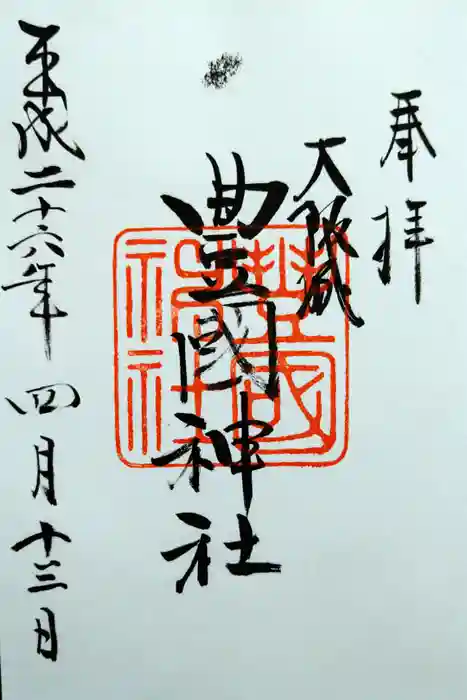 奉拝
大阪城
豊國神社
平成二十六年四月十三日
豊國神社